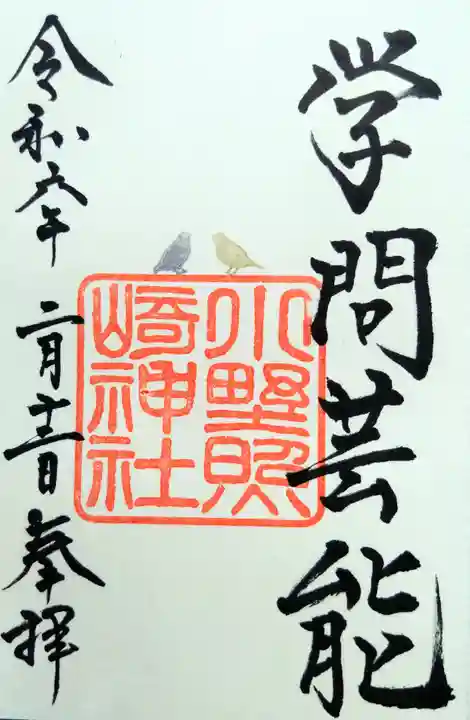 学問芸能
小野照
崎神社
令和六年 二月十二日 奉拝